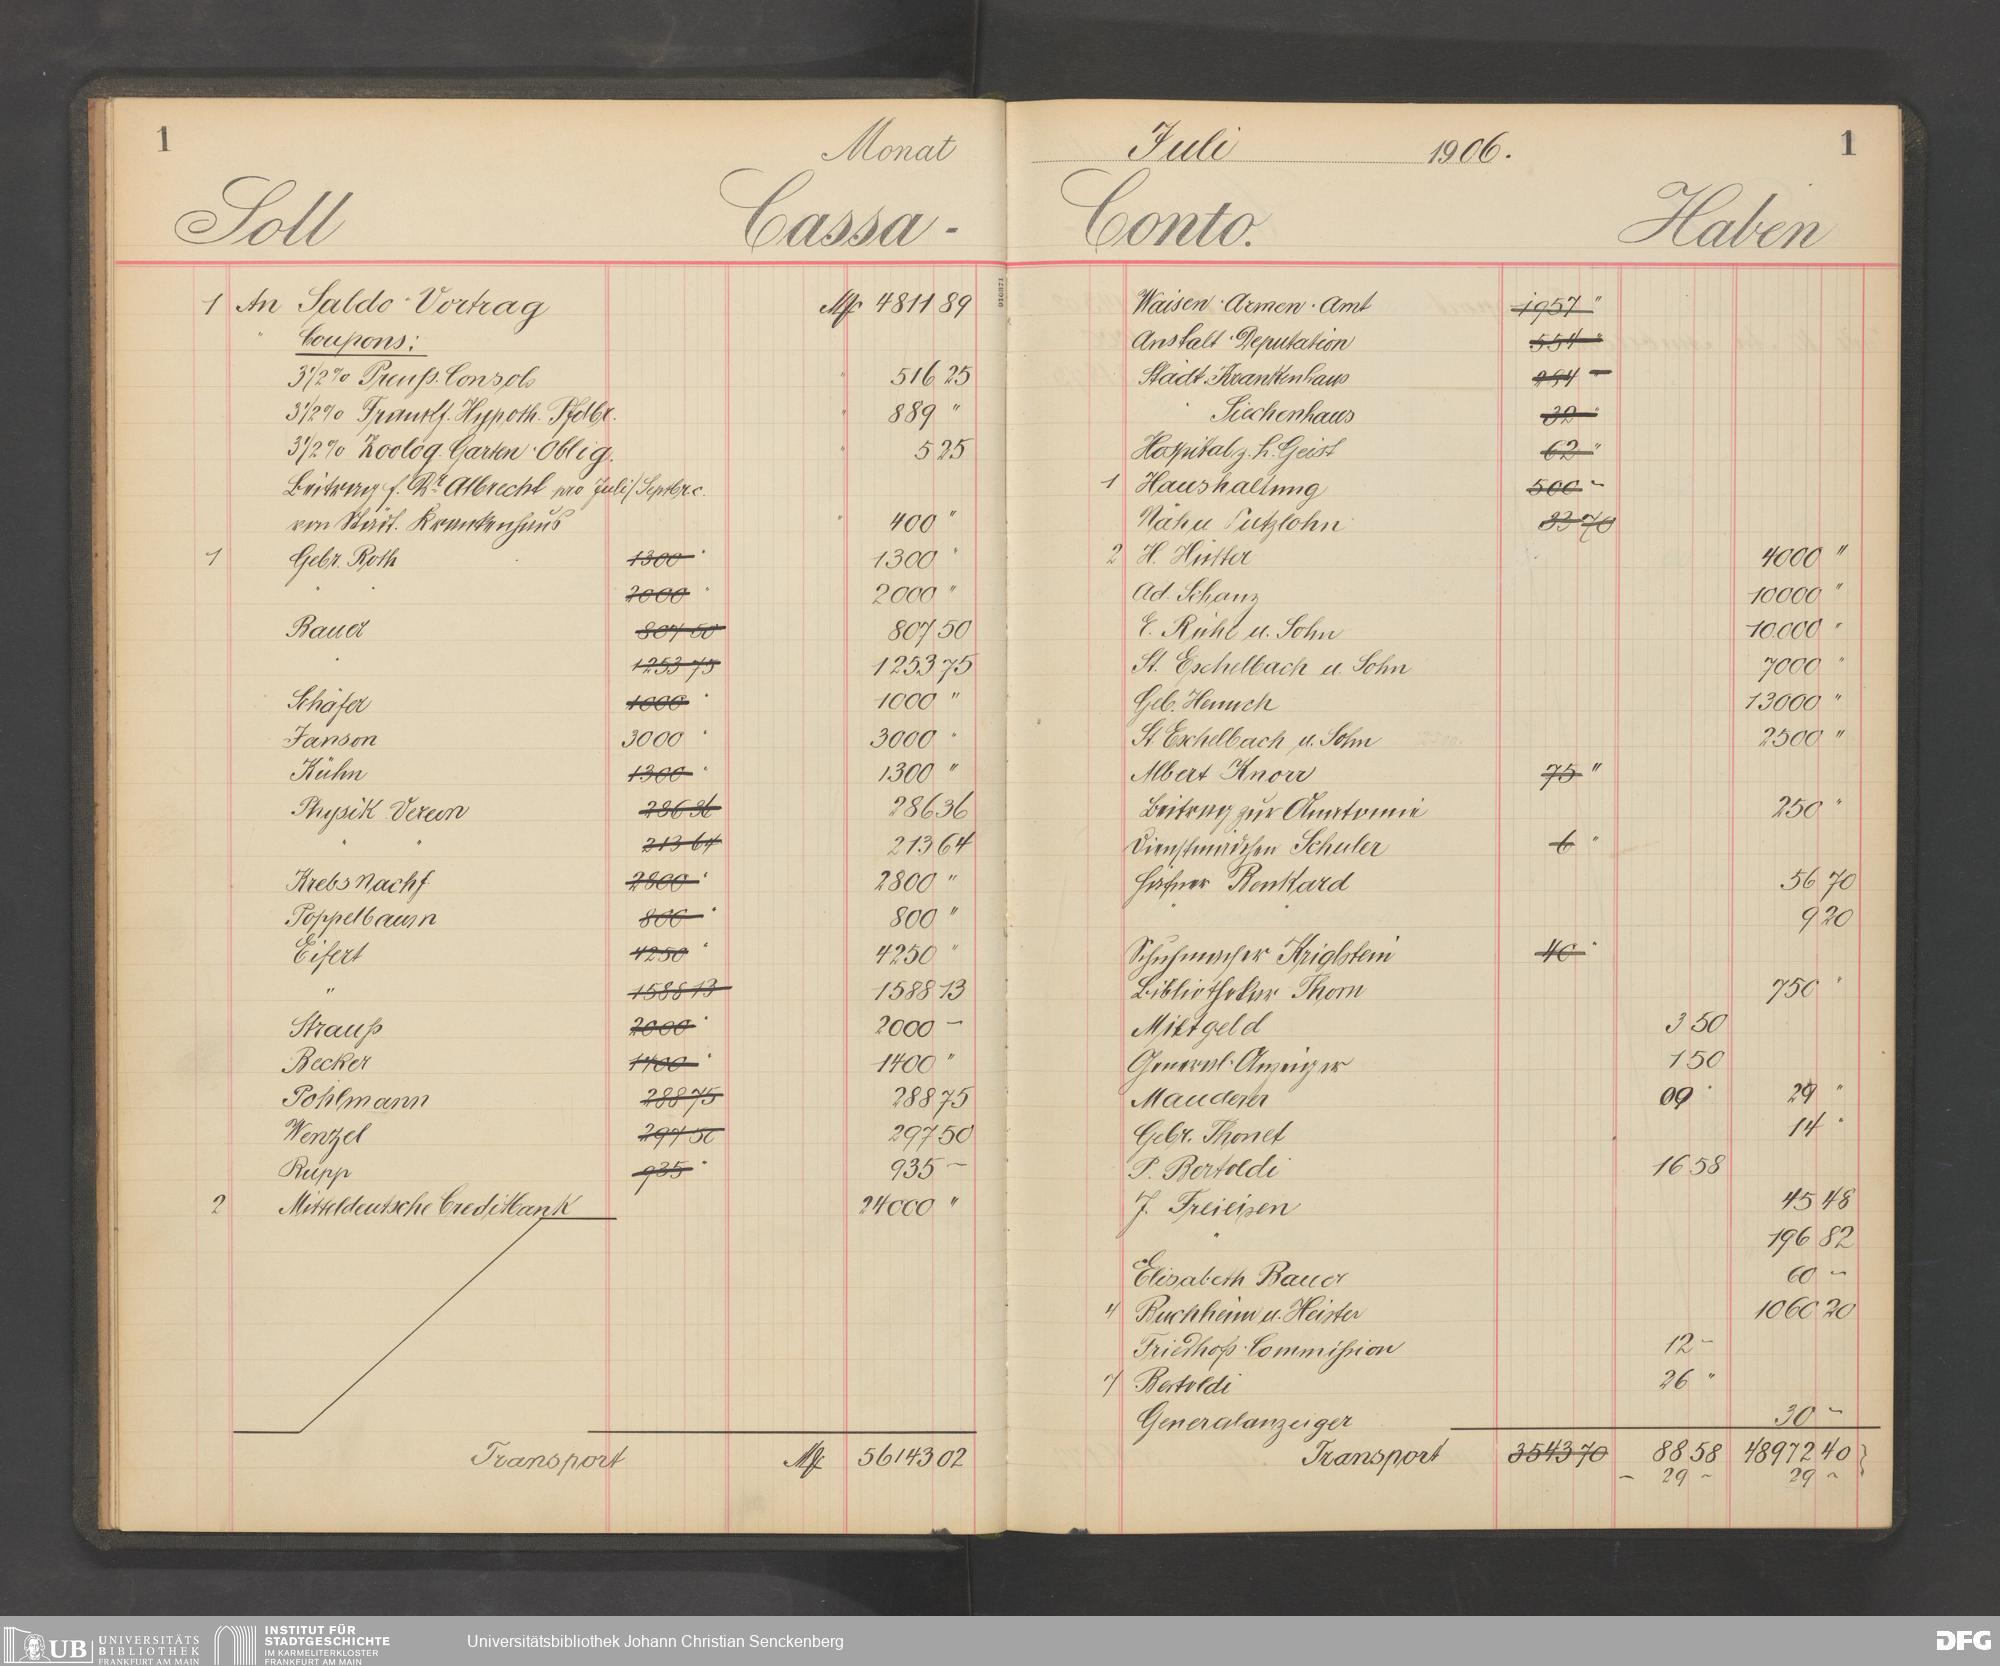 1
Monat
Soll Cassa -
1 An Saldo-Vortrag M 4811 89
" Coupons:
3 1/2 % Preuß. Consols " 516 25
3 1/2 % Frankf. Hypoth. Pfdbr. " 889 "
3 1/2 % Zoolog. Garten-Oblig. " 5 25
Beitrag f. Dr Albrecht pro Juli/Septbr. c.
von Städt. Krankenhaus " 400 "
1 Gebr. Roth 1300 " 1300 "
" 2000 " 2000 "
Bauer 807 50 807 50
" 1253 75 1253 75
Schäfer 1000 " 1000 "
Janson 3000 " 3000 "
Kühn 1300 " 1300 "
Physik. Verein 286 36 286 36
" " 213 64 213 64
Krebs Nachf. 2800 " 2800 "
Poppelbaum 800 " 800 "
Eifert 4250 " 4250 "
" 1588 13 1588 13
Strauß 2000 " 2000 –
Becker 1400 " 1400 "
Pohlmann 288 75 288 75
Wenzel 297 50 297 50
Rupp 935 " 935 –
2 Mitteldeutsche Creditbank 24000 "
Transport M 56143 02
Juli 1906.
1
Conto. Haben
Waisen-Armen-Amt 1957 "
Anstalt-Deputation 554 "
Städt. Krankenhaus 294 –
" Siechenhaus 32 "
Hospital z. h. Geist 62 "
1 Haushaltung 500 –
Näh u Putzlohn 33 70
2 H. Hütter 4000 "
Ad. Schanz 10000 "
E. Rühl u. Sohn 10.000 "
St. Eschelbach u. Sohn 7000 "
Geb. Hennich 13000 "
St Eschelbach u. Sohn 2500 "
Albert Knorr 75 "
Beitrag zur Anatomie 250 "
Dienstmädchen Schuler 6 "
Häfner Renkard 56 70
" " 9 20
Schuhmacher Kriglstein 40 "
Bibliothekar Thorn 750 "
Mietgeld 3 50
General-Anzeiger 1 50
Mauderer 09 " 29 "
Gebr. Thonet 14 "
P. Bertoldi 16 58
J. Freieisen 45 48
" 196 82
Elisabeth Bauer 60 –
4 Buchheim u. Heister 1060 20
Friedhofs-Commission 12 –
7 Bertoldi 26 "
Generalanzeiger 30 –
Transport 3543 70 88 58 48972 40
– 29 – 29 –
UB UNIVERSITÄTS
BIBLIOTHEK
FRANKFURT AM MAIN
INSTITUT FÜR
STADTGESCHICHTE
IM KARMELITERKLOSTER
FRANKFURT AM MAIN
Universitätsbibliothek Johann Christian Senckenberg
DFG